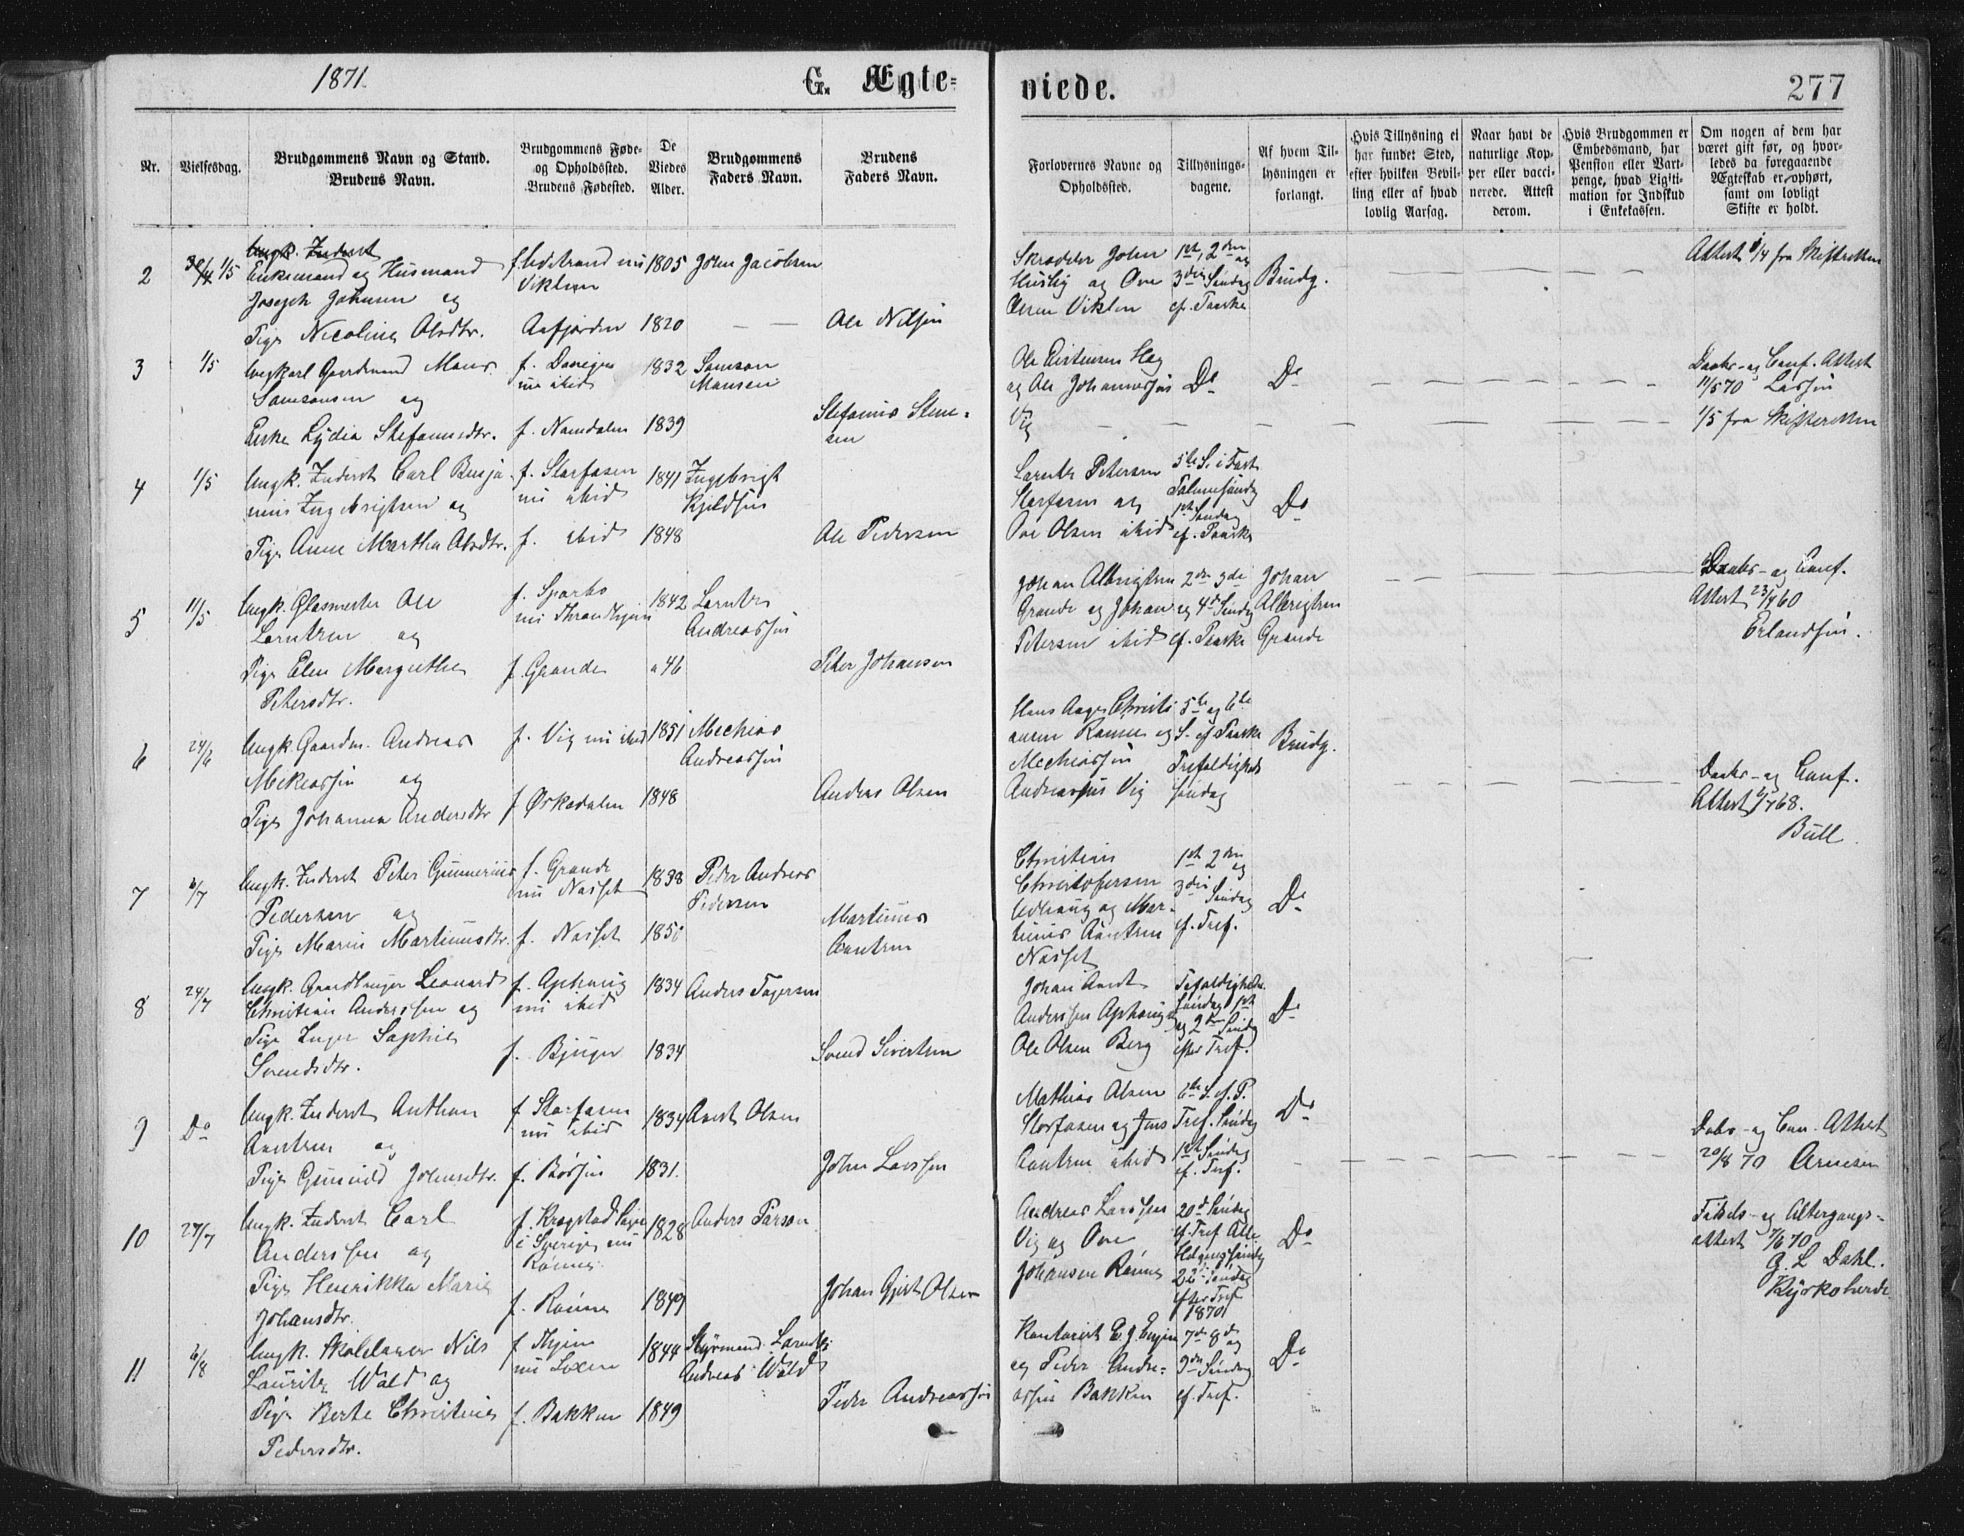 1871.
G. Ægte=
viede.
277
Nr.
Vielsesdag.
Brudgommens Navn og Stand.
Brudens Navn.
Brudgommens Føde-
og Opholdssted.
Brudens Fødested.
De
Viedes
Alder.
Brudgommens
Faders Navn.
Brudens
Faders Navn.
Forlovernes Navne og
Opholdssted.
Tillysnings-
dagene.
Af hvem Til-
lysningen er
forlangt.
Hvis Tillysning ei
har fundet Sted,
efter hvilken Bevil-
ling eller af hvad
lovlig Aarsag.
Naar havt de
naturlige Kop-
per eller vacci-
nerede. Attest
derom.
Hvis Brudgommen er
Embedsmand, har
Pension eller Vart-
penge, hvad Ligiti-
mation for Indskud
i Enkekassen.
Om nogen af dem har
været gift før, og hvor-
ledes da foregaaende
Ægteskab er ophørt,
samt om lovligt
Skifte er holdt.
2
1/5
Ungk. Inderst
Enkemand og Husmand
Joseph Johnsen og
Pige Nicoline Olsdtr.
Aafjorden
1805
1820
John Jacobsen
Ole Nilsen
Skrædder John
Huslig og Ove
1ste, 2den og
3die Søndag
ef. Paaske
Brudg.
Attest 1/4 fra Skifteretten
3
1/5
Ungkarl Gaardmand Mons
Samsonsen og
Enke Lydia Stefanusdtr.
nu ibid
f. Namdalen
1832
1839
Samson
Monsen
Stefanus Sten-
sen
og Ole Johannessen
Vig
Do
Do
Daabs- og Conf. Attest
11/5 70 Larssen
1/5 fra Skifteretten
4
1/5
Ungk. Inderst Carl Benja-
mins Ingebrigtsen og
Pige Anne Martha Olsdtr.
f. Storfosen
nu ibid
f. ibid
1841
1848
Ingebrigt
Kjeldsen
Ole Pedersen
Lorents Petersen
Storfosen og
Ove Olsen ibid
5te S. i Fast.
Palmesøndag
1ste Søndag
ef. Paaske
Do
5
11/5
Ungk. Glasmester Ole
Lorentsen og
Pige Elen Margrethe
Petersdtr.
f. Sparbo
nu Throndhjem
f. Grande
1842
" 46
Lorents
Andreassen
Peter Johansen
Johan Albrigtsen
Grande og Johan
Petersen ibid
2den 3die
og 4de Søndag
ef. Paaske
Johan
Albrigtsen
Grande
Daabs- og Conf.
Attest 23/4 60
Erlandsen.
6
24/6
Ungk. Gaardm. Andreas
Mekiassen og
Pige Johanna Andersdtr
f. Vig nu ibid
f Ørkedalen
1851
1848
Mechias
Andreassen
Anders Olsen
Hans Aage Christi-
ansen Rønne og
Mechias
Andreassen Vig
5te og 6te
S. ef Paaske
Trefoldigheds
søndag
Brudg.
Daabs- og Conf.
Attest 68.
Bull
7
6/7
Ungk. Inderst Peter Gunnerius
Pedersen og
Pige Marie Martinusdtr.
f. Grande
nu Nasset
f. Nasset
1838
1850
Peder Andreas
Pedersen
Martinus
Arntsen
Christian
Christofersen
Udhaug og Mar-
tinus Arntsen
Nasset
1ste 2den og
3die Søndag
ef. Tref.
Do
8
24/7
Ungk. Gaardbruger Leonard
Christian Anderssen og
Pige Inger Sophie
Svendsdtr.
f. Ophaug
nu ibid
f. Bjugn
1834
1834
Svend Sivertsen
Johan Arnt
Anderssen Ophaug og
Ole Olsen Berg
Trefoldigheds
Søndag 1ste
og 2den Søndag
efter Tref.
Do
9
Do
Ungk. Inderst Anthon
Arntsen og
Pige Gunnild Johnsdtr.
f Storfosen
nu ibid
f. Børsen
1834
1831.
Arnt Olsen
John Larssen
Mathias Olsen
Storfosen og Jens
Arntsen ibid
6te S. ef. P.
Tref. Søndag
1ste Søndag
ef. Tref.
Do
Daabs- og Con. Attest
20/8 70 Arnesen
10
27/7
Ungk. Inderst Carl
Anderssen og
Pige Henrikka Marie
Johansdtr.
i Sverige nu
Rønne
f. Rønne
1828
1849
Anders Parson
Johan Gjert Olsen
Andreas Larssen
Vig og Ove
Johansen Rønne
20de Søndag
ef. Tref Alle-
Helgens Søndag
22de Søndag
efter Tref
1870
Do
Fødsels- og Altergangs-
attest 7/6 70
G. L. Dahl.
Kyrkoherde
11
6/8
Ungk. Skolelærer Nils
Lauritz Wold og
Pige Berte Christine
Pedersdtr.
f. Bakken
1844
1849
Styrmand Lorents
Andreas Wold
Peder Andreassen
og Peder Andre-
assen Bakken
7de 8de og
9de Søndag
ef. Tref.
Do